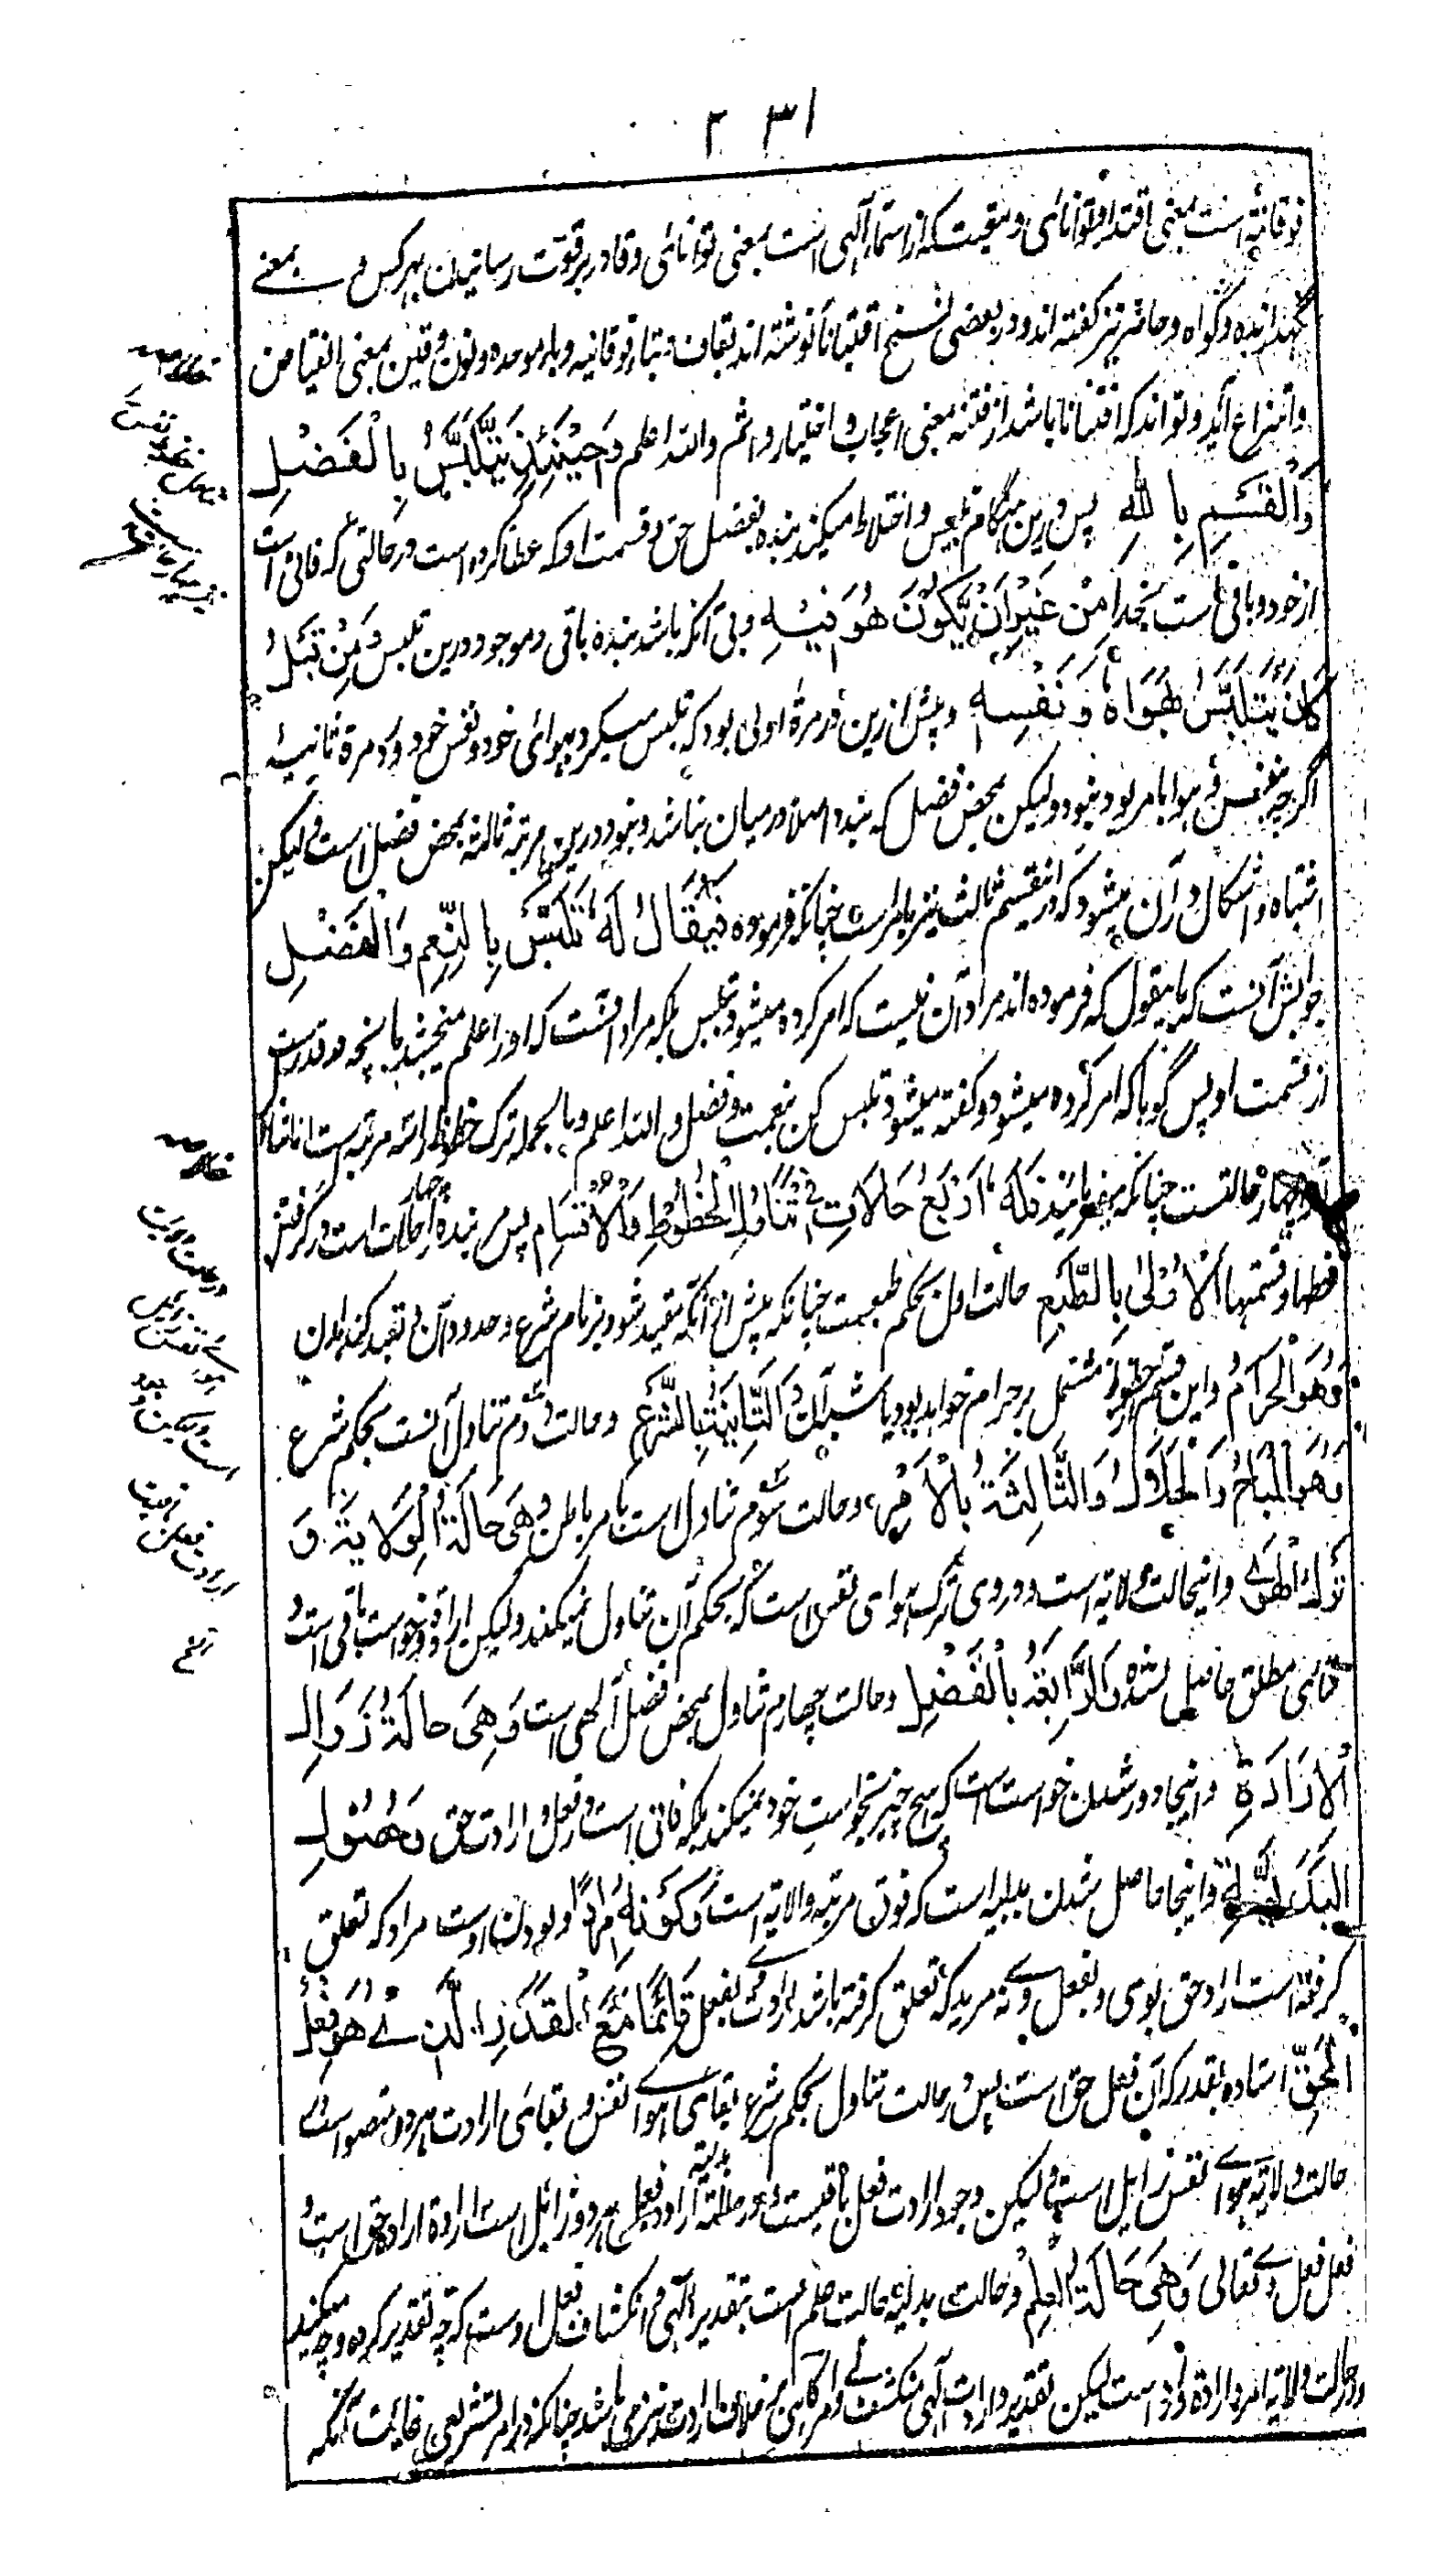 ۲۳۱
فوقانیه است بمعنی اقتدار و توانائی و مقیت که از اسماء الهی است بمعنی توانائی و قادر بر قوت رسانیدن بهر کس و بمعنے
نگهدارنده و گواه و حاضر نیز گفته اند و در بعضی نسخ اقتبانا نوشته اند بقاف و تاء فوقانیه و باء موحده و نون
و انتزاع آید و تواند که افتنانا باشد از فتنه بمعنی اعجاب و اختیار و اثم والله اعلم وَحِيْنَئِذٍ يَتَلَبَّسُ بِالْفَضْلِ
وَالْقَسْمِ بِاللهِ پس درین هنگام تلبس و اختلاط میکند بنده بفضل حق و قسمت او که عطا کرده است در حالتی که فانی است
از خود و باقی است بخدا مِنْ غَيْرِ اَنْ يَّكُوْنَ هُوَ فِيْهِ و بی آنکه باشد بنده باقی و موجود درین تلبس وَمِنْ قَبْلُ
كَانَ يَتَلَبَّسُ بِهَوَاهُ وَنَفْسِهِ و پیش ازین در مرهٔ اولی بود که تلبس میکرد بهوائی خود و نفس خود و در مرهٔ ثانیه
اگرچه بنفس و هوا بامر بود نبود و لیکن محض فضل که بنده اصلا درمیان نباشد نبود و درین مرتبه ثالثه محض فضل است و لیکن
اشتباه و اشکال در آن میشود که در تقسیم ثالث نیز بامر است چنانکه فرموده فَيُقَالُ لَهُ تَلَبَّسْ بِالنِّعَمِ وَالْفَضْلِ
جوابش آنست که بایقول که فرموده اند مراد آن نیست که امر کرده میشود بتلبس بلکه مراد آنست که او را علم میبخشد بآنچه مقدرست
از قسمت او پس گویا که امر کرده میشود و گفته میشود تلبس کن بنعمت و فضل والله اعلم و بالجمله ترک حظوظ را سه مرتبه است
چهار حالتست چنانکه میفرمایند فَلَهُ اَرْبَعُ حَالَاتٍ فِيْ تَنَاوُلِ الْحُظُوْظِ وَالْاَقْسَامِ پس مر بنده را چهار حالت است در گرفتن
حظها و قسمتها اَلْاُوْلٰى بِالطَّبْعِ حالت اول بحکم طبیعت چنانکه پیش از آنکه مقید شود بزمام شرع و حدود آن و تقید کند بدان
وَهُوَ الْحَرَامُ و این قسم حظوظ مشتمل بر حرام خواهد بود یا شبه آن وَالثَّانِيَةُ بِالشَّرْعِ و حالت دوم تناول آنست بحکم شرع
وَهُوَ الْمُبَاحُ وَالْحَلَالُ وَالثَّالِثَةُ بِالْاَمْرِ و حالت سوم تناول است بامر باطن وَهِيَ حَالَةُ الْوَلَايَةِ وَ
تَرْكِ الْهَوٰى و اینحالت ولایه است و در وی ترک هوای نفس است که بحکم آن تناول نمیکند و لیکن ارادت و خواست باقی است و
فنای مطلق حاصل نشده وَالرَّابِعَةُ بِالْفَضْلِ و حالت چهارم تناول بمحض فضل الهی است وَهِيَ حَالَةُ زَوَالِ
الْاِرَادَةِ و اینجا دور شدن خواست است که هیچ چیز بخواست خود نمیکند بلکه فانی است در فعل و ارادت حق وَحُصُوْلِ
الْبَدَلِيَّةِ و اینجا حاصل شدن بدلیه است که فوق مرتبه ولایه است وَكَوْنِهِ مُرَادًا و بودن اوست مراد که تعلق
گرفته است اراد حق بوی و بفعل وے و نه مرید که تعلق گرفته باشد ارادت وے بفعل قَائِمًا مَعَ الْقَدَرِ الَّذِيْ هُوَ فِعْلُ
الْحَقِّ استاده بقدر که آن فعل حق است پس در حالت تناول بحکم شرع بقای هواے نفس و بقائی ارادت هر دو متصور است و
حالت ولایه هواے نفس زایل است و لیکن وجود ارادت فعل باقیست و در حالت بدلیه اراده و فعل هر دو زائل است اراده اراده حق است و
فعل فعل وے تعالی وَهِيَ حَالَةُ الْعِلْمِ و حالت بدلیه حالت علم است بتقدیر الهی و انکشاف فعل اوست که چه تقدیر کرده و چه میکند
و در حالت ولایه امر و اراده او است لیکن تقدیر و ارادت الهی منکشف نے و امر گاهی بر خلاف ارادت نیز می باشد چنانکه در امر تشریعی غایت آنکه